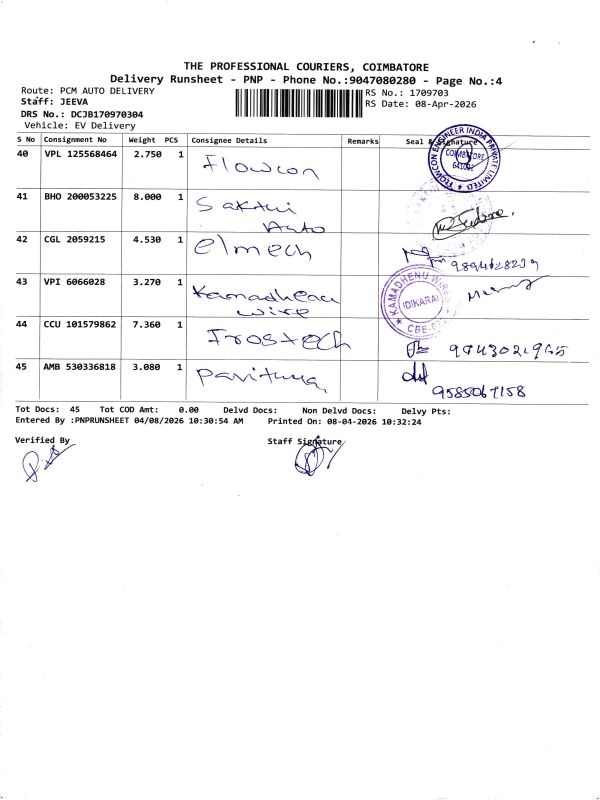 THE PROFESSIONAL COURIERS, COIMBATORE
Delivery Runsheet - PNP - Phone No.:9047080280 - Page No.:4
Route: PCM AUTO DELIVERY
RS No.: 1709703
Staff: JEEVA
RS Date: 08-Apr-2026
DRS No.: DCJB170970304
Vehicle: EV Delivery
S No Consignment No Weight PCS Consignee Details Remarks Seal & Signature
40 VPL 125568464 2.750 1 Flowcon
FLOWCON ENGINEER INDIA PRIVATE LIMITED ★ COIMBATORE
41 BHO 200053225 8.000 1 Sakthi
Auto
42 CGL 2059215 4.530 1 elmech
9894628239
43 VPI 6066028 3.270 1 Kamadhenu
wire
★ KAMADHENU IDIKARAI CBE
44 CCU 101579862 7.360 1 Frostech
9043021965
45 AMB 530336818 3.080 1
9585067158
Tot Docs: 45 Tot COD Amt: 0.00 Delvd Docs: Non Delvd Docs: Delvy Pts:
Entered By :PNPRUNSHEET 04/08/2026 10:30:54 AM Printed On: 08-04-2026 10:32:24
Verified By Staff Signature